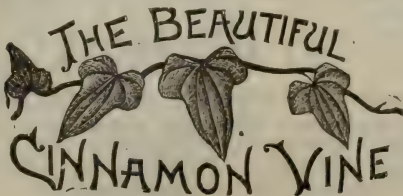 THE BEAUTIFUL
CINNAMON VINE